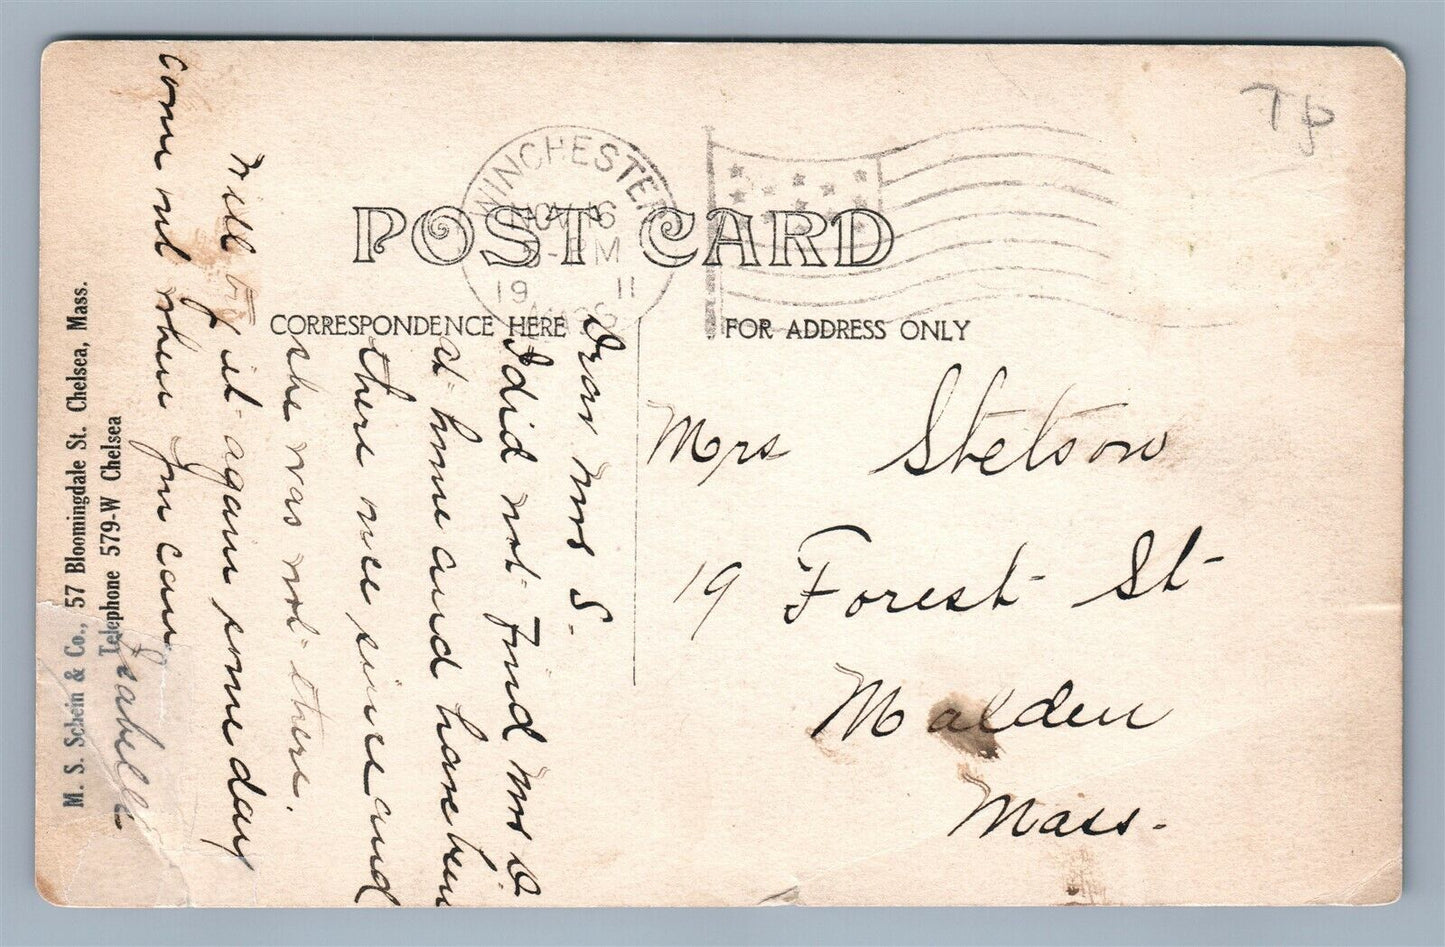 TP
WINCHESTER
NOV 16
-PM
19 11
MASS
POST CARD
CORRESPONDENCE HERE
FOR ADDRESS ONLY
Mrs Stetson
19 Forest St
Malden
Mass.
Dear Mrs S.
I did not find Mrs D
at home and have been
there once since and
she was not there.
Will try it again some day
Come out when you can
Isabelle
M. S. Schein & Co., 57 Bloomingdale St. Chelsea, Mass.
Telephone 579-W Chelsea